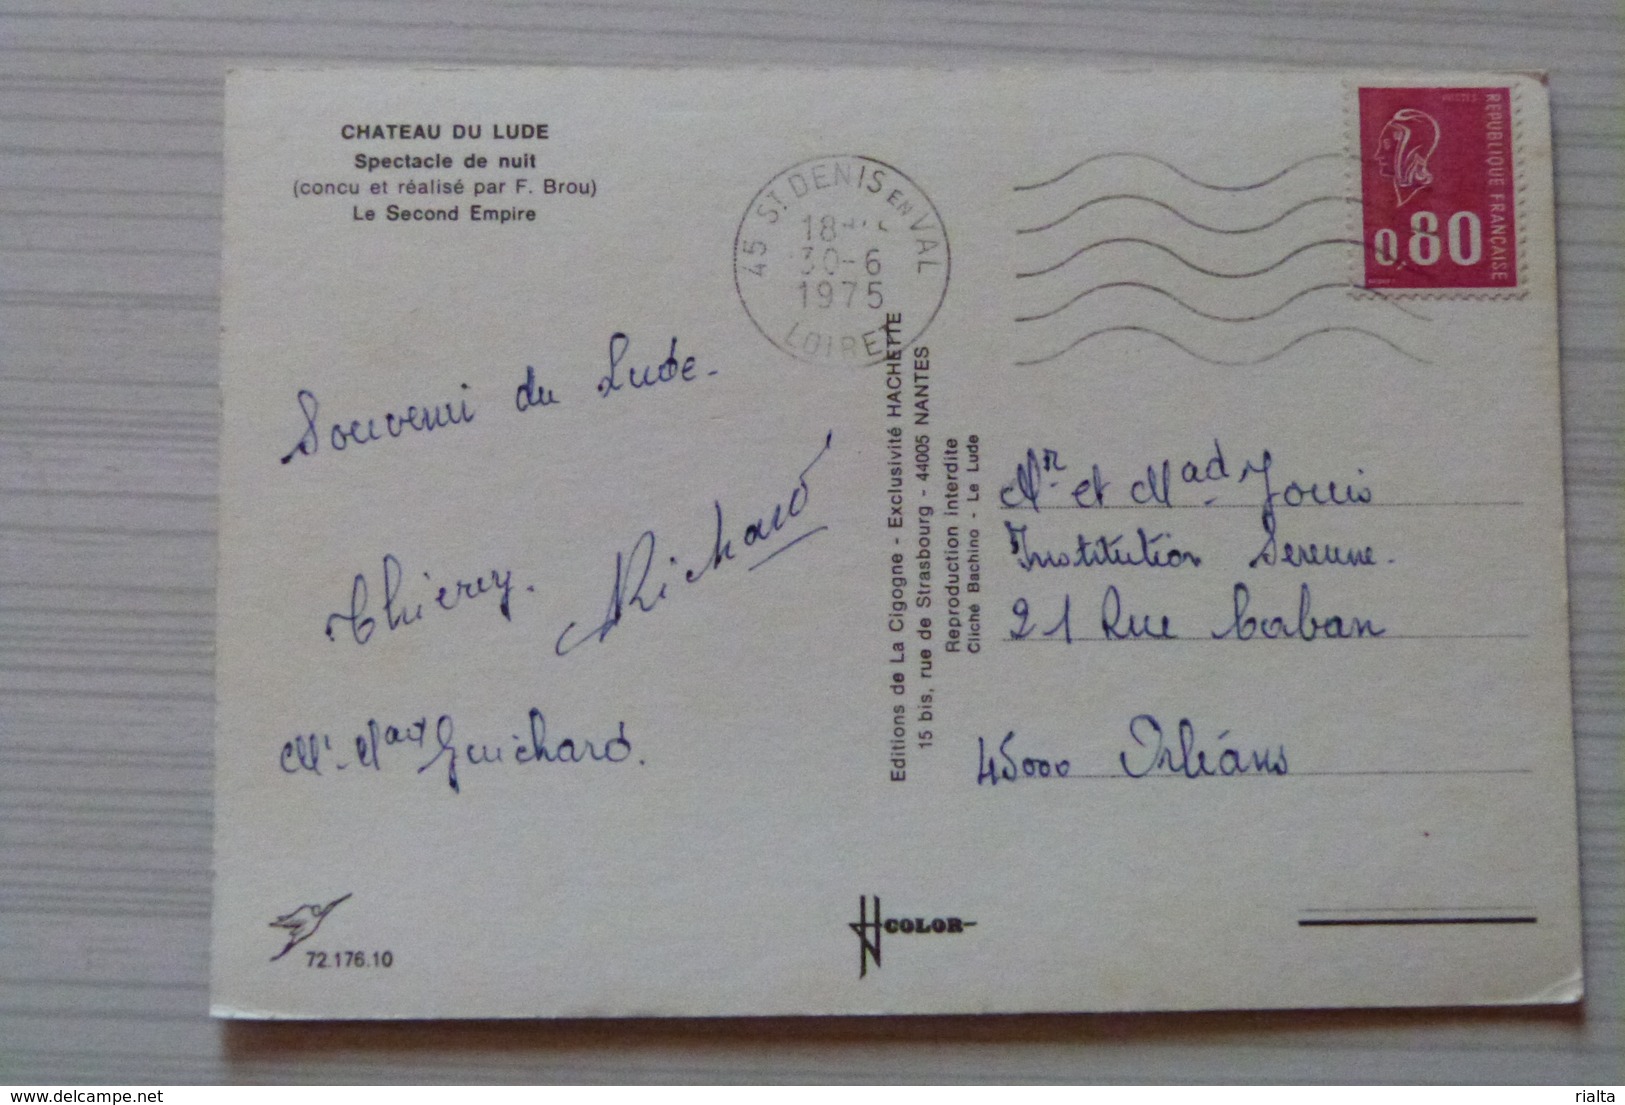 CHATEAU DU LUDE
Spectacle de nuit
(concu et réalisé par F. Brou)
Le Second Empire
45 ST. DENIS EN VAL
18
30-6
1975
LOIRET
POSTES
REPUBLIQUE FRANCAISE
0,80
Souvenir du Lude.
Thierry. Richard
Mr. Mad Guichard.
Editions de La Cigogne - Exclusivité HACHETTE
15 bis, rue de Strasbourg - 44005 NANTES
Reproduction interdite
Cliché Bachino - Le Lude
Mr et Mad Jouis
Institution Serenne.
21 Rue Caban
45000 Orléans
72.176.10
COLOR
delcampe.net
rialta